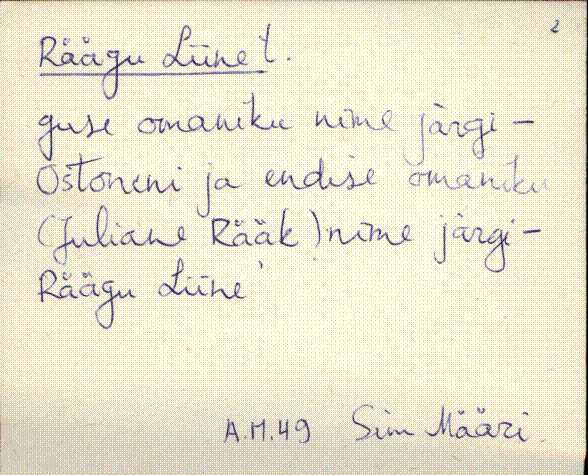 2
Räägu Liine t.
guse omaniku nime järgi -
Ostoneni ja endise omaniku
(Juliane Rääk) nime järgi -
Räägu Liine
A.M.49 Sim Määri